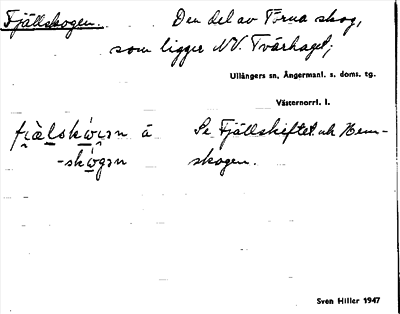 Fjällskogen. Den del av Torna skog,
som ligger NV. Tvärhaget;
Ullångers sn, Ångermanl. s. doms. tg.
Västernorrl. l.
fi̯ä̀lskó̤gən ä Se Fjällskiftet och Hem-
-skó̤gən skogen.
Sven Hiller 1947